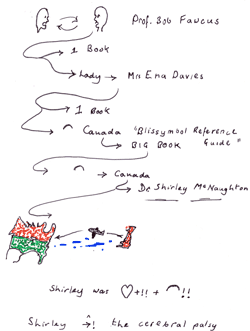 Prof. Bob Fawcus
1 Book
Lady → Mrs Ena Davies
1 Book
Canada "Blissymbol Reference
Guide"
BIG BOOK
Canada
Dr Shirley McNaughton
Shirley was ♡+!! + ⌒!!
Shirley →! the cerebral palsy